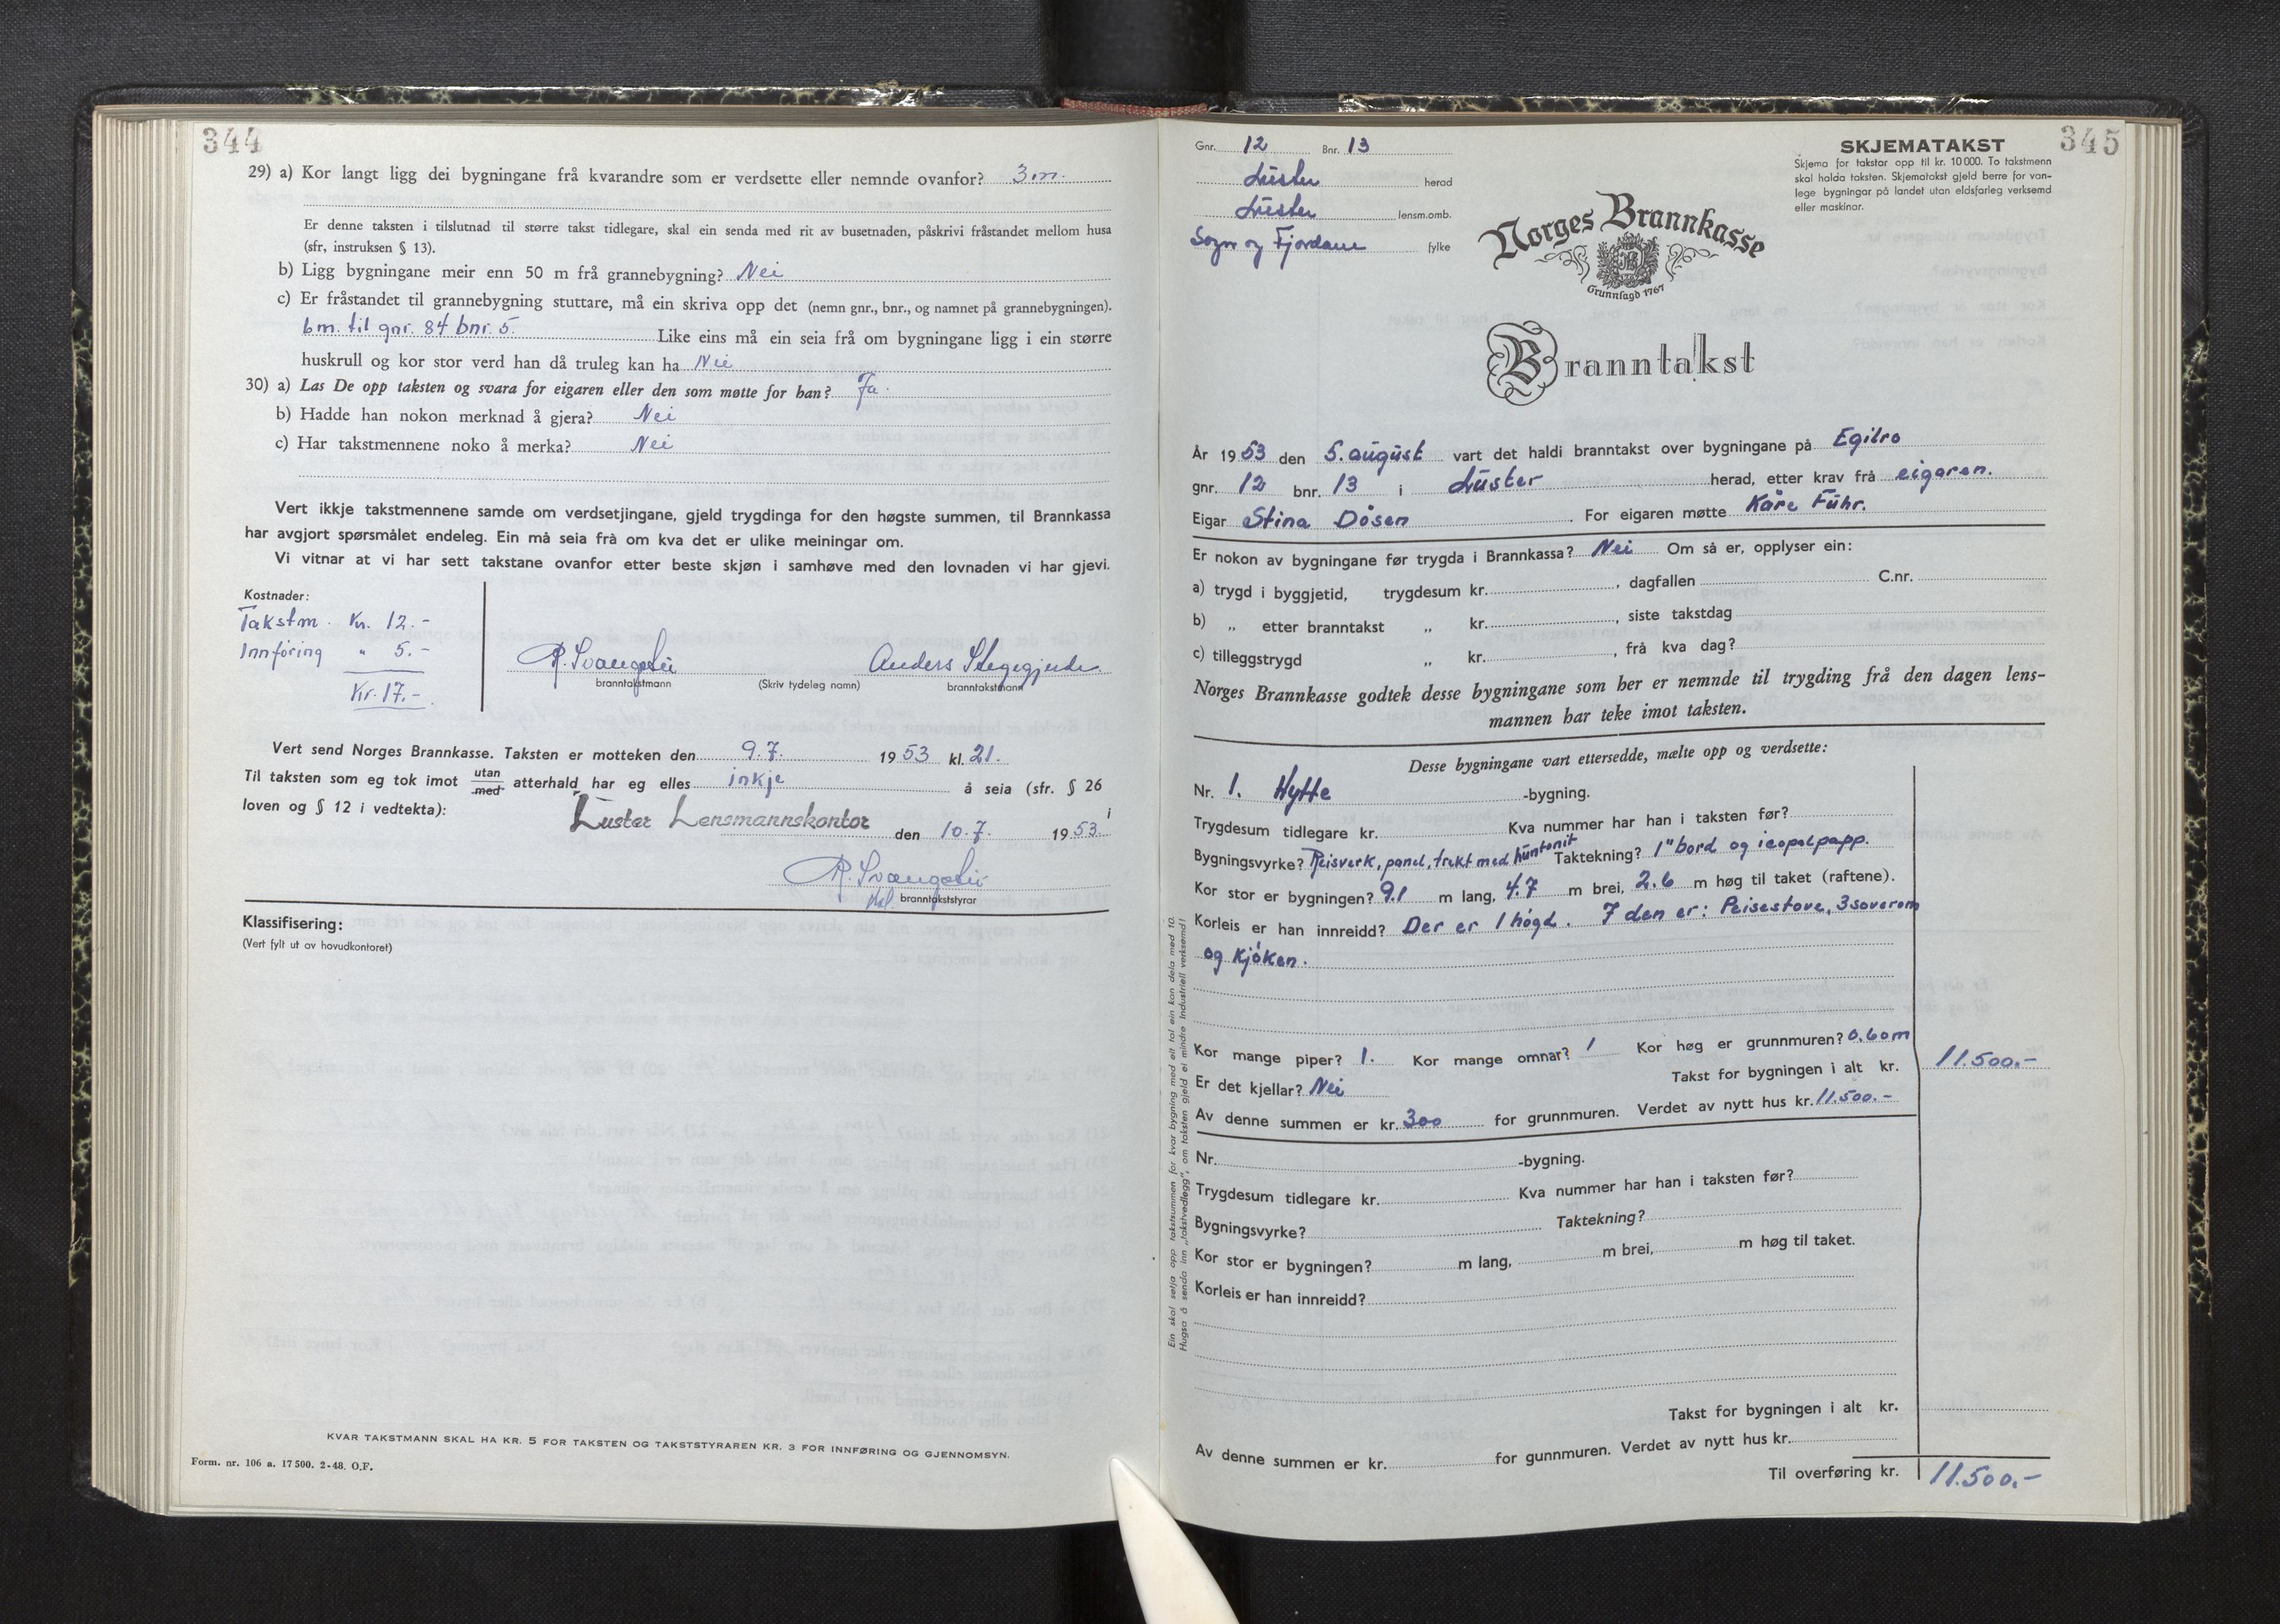 344
29) a) Kor langt ligg dei bygningane frå kvarandre som er verdsette eller nemnde ovanfor? 3 m.
Er denne taksten i tilslutnad til større takst tidlegare, skal ein senda med rit av busetnaden, påskrivi fråstandet mellom husa
(sfr, instruksen § 13).
b) Ligg bygningane meir enn 50 m frå grannebygning? Nei
c) Er fråstandet til grannebygning stuttare, må ein skriva opp det (nemn gnr., bnr., og namnet på grannebygningen).
6 m. til gnr. 84 bnr. 5. Like eins må ein seia frå om bygningane ligg i ein større
huskrull og kor stor verd han då truleg kan ha Nei
30) a) Las De opp taksten og svara for eigaren eller den som møtte for han? Ja.
b) Hadde han nokon merknad å gjera? Nei
c) Har takstmennene noko å merka? Nei
Vert ikkje takstmennene samde om verdsetjingane, gjeld trygdinga for den høgste summen, til Brannkassa
har avgjort spørsmålet endeleg. Ein må seia frå om kva det er ulike meiningar om.
Vi vitnar at vi har sett takstane ovanfor etter beste skjøn i samhøve med den lovnaden vi har gjevi.
Kostnader:
Takstm. Kr. 12.-
Innföring " 5.-
Kr. 17.-
R. Svangstu Anders Stegegjerde
branntakstmann (Skriv tydeleg namn) branntakstmann
Vert send Norges Brannkasse. Taksten er motteken den 9.7. 1953 kl. 21.
Til taksten som eg tok imot utan med atterhald, har eg elles inkje å seia (sfr. § 26
loven og § 12 i vedtekta):
Luster Lensmannskontor den 10.7. 1953. i
R. Svangstu
branntakststyrar
Klassifisering:
(Vert fylt ut av hovudkontoret)
KVAR TAKSTMANN SKAL HA KR. 5 FOR TAKSTEN OG TAKSTSTYRAREN KR. 3 FOR INNFØRING OG GJENNOMSYN.
Form. nr. 106 a. 17 500. 2-48. O.F.
345
Gnr. 12 Bnr. 13
Lüster herad
Lüster lensm.omb.
Sogn og Fjordane fylke
SKJEMATAKST
Skjema for takstar opp til kr. 10 000. To takstmenn
skal halda taksten. Skjematakst gjeld berre for van-
lege bygningar på landet utan eldsfarleg verksemd
eller maskinar.
Norges Brannkasse
Grunnlagd 1767
Branntakst
År 1953 den 5. august vart det haldi branntakst over bygningane på Egilro
gnr. 12 bnr. 13 i Lüster herad, etter krav frå eigaren.
Eigar Stina Dösen. For eigaren møtte Kåre Führ.
Er nokon av bygningane før trygda i Brannkassa? Nei Om så er, opplyser ein:
a) trygd i byggjetid, trygdesum kr. , dagfallen C.nr.
b) „ etter branntakst „ kr. , siste takstdag
c) tilleggstrygd „ kr. , frå kva dag?
Norges Brannkasse godtek desse bygningane som her er nemnde til trygding frå den dagen lens-
mannen har teke imot taksten.
Desse bygningane vart ettersedde, mælte opp og verdsette:
Nr. 1. Hytte -bygning.
Trygdesum tidlegare kr. Kva nummer har han i taksten før?
Bygningsvyrke? Reisverk, panel, trekt med huntonit Taktekning? 1" bord og icopalpapp.
Kor stor er bygningen? 9.1 m lang, 4.7 m brei, 2.6 m høg til taket (raftene).
Korleis er han innreidd? Der er 1 högd. I den er: Peisestove, 3 soverom
og kjöken.
Kor mange piper? 1. Kor mange omnar? 1 Kor høg er grunnmuren? 0.60 m
Er det kjellar? Nei Takst for bygningen i alt kr. 11.500.-
Av denne summen er kr. 300 for grunnmuren. Verdet av nytt hus kr. 11.500.-
Nr. -bygning.
Trygdesum tidlegare kr. Kva nummer har han i taksten før?
Bygningsvyrke? Taktekning?
Kor stor er bygningen? m lang, m brei, m høg til taket.
Korleis er han innreidd?
Takst for bygningen i alt kr.
Av denne summen er kr. for gunnmuren. Verdet av nytt hus kr.
Til overføring kr. 11.500.-
Ein skal setja opp takstsummen for kvar bygning med eit tal ein kan dela med 10.
Hugsa å senda inn „takstvedlegg", om taksten gjeld ei mindre industriell verksemd!